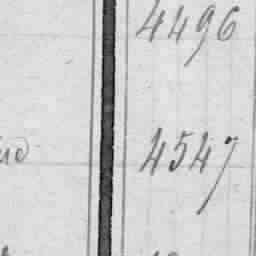 4496
4547